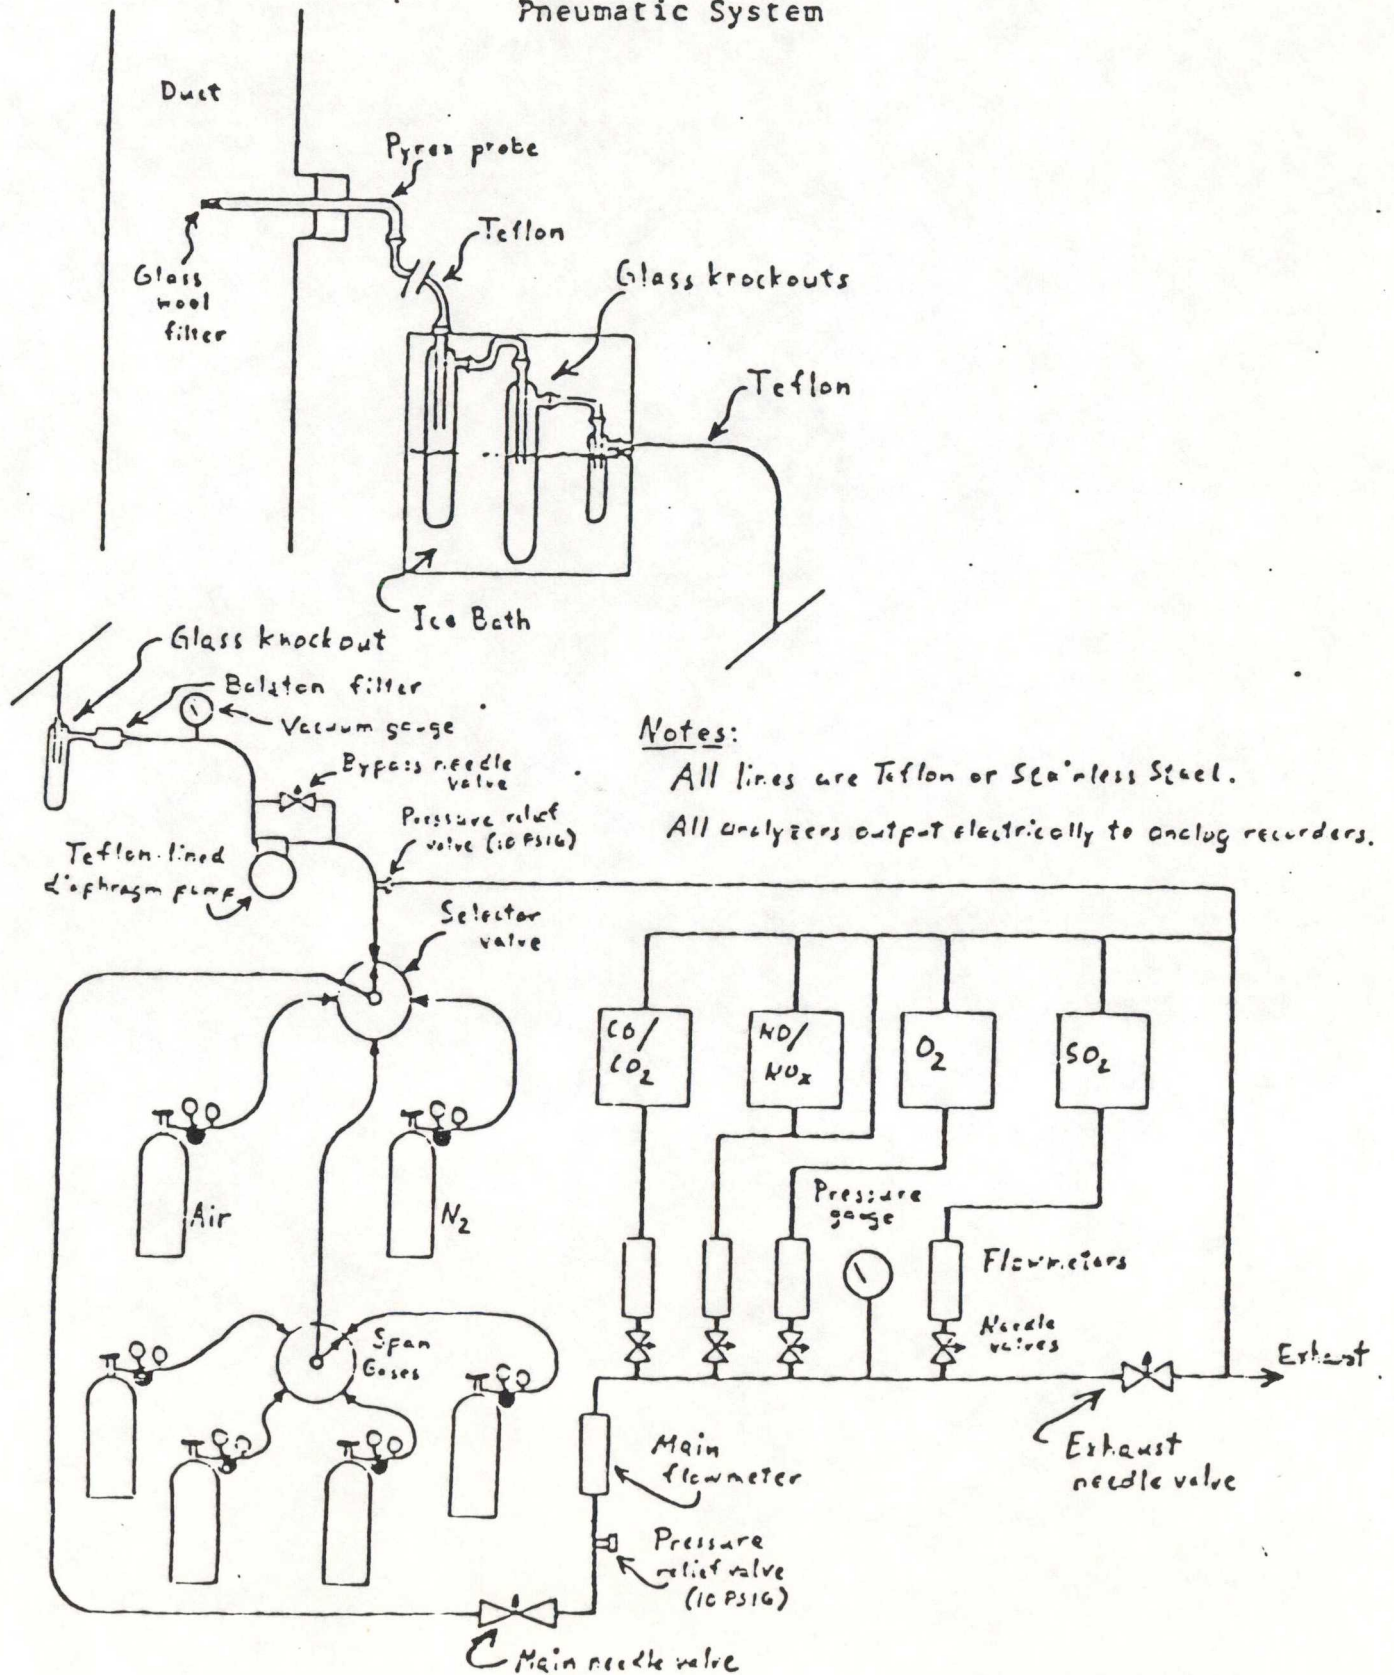 Pneumatic System
Duct
Pyrex probe
Teflon
Glass
wool
filter
Glass knockouts
Teflon
Ice Bath
Glass knockout
Balston filter
Vacuum gauge
Bypass needle
valve
Pressure relief
valve (10 PSIG)
Teflon-lined
diaphragm pump
Notes:
All lines are Teflon or Stainless Steel.
All analyzers output electrically to analog recorders.
Selector
valve
CO/
CO2
NO/
NOx
O2
SO2
Air
N2
Pressure
gauge
Flowmeters
Needle
valves
Span
Gases
Exhaust
Main
flowmeter
Exhaust
needle valve
Pressure
relief valve
(10 PSIG)
Main needle valve